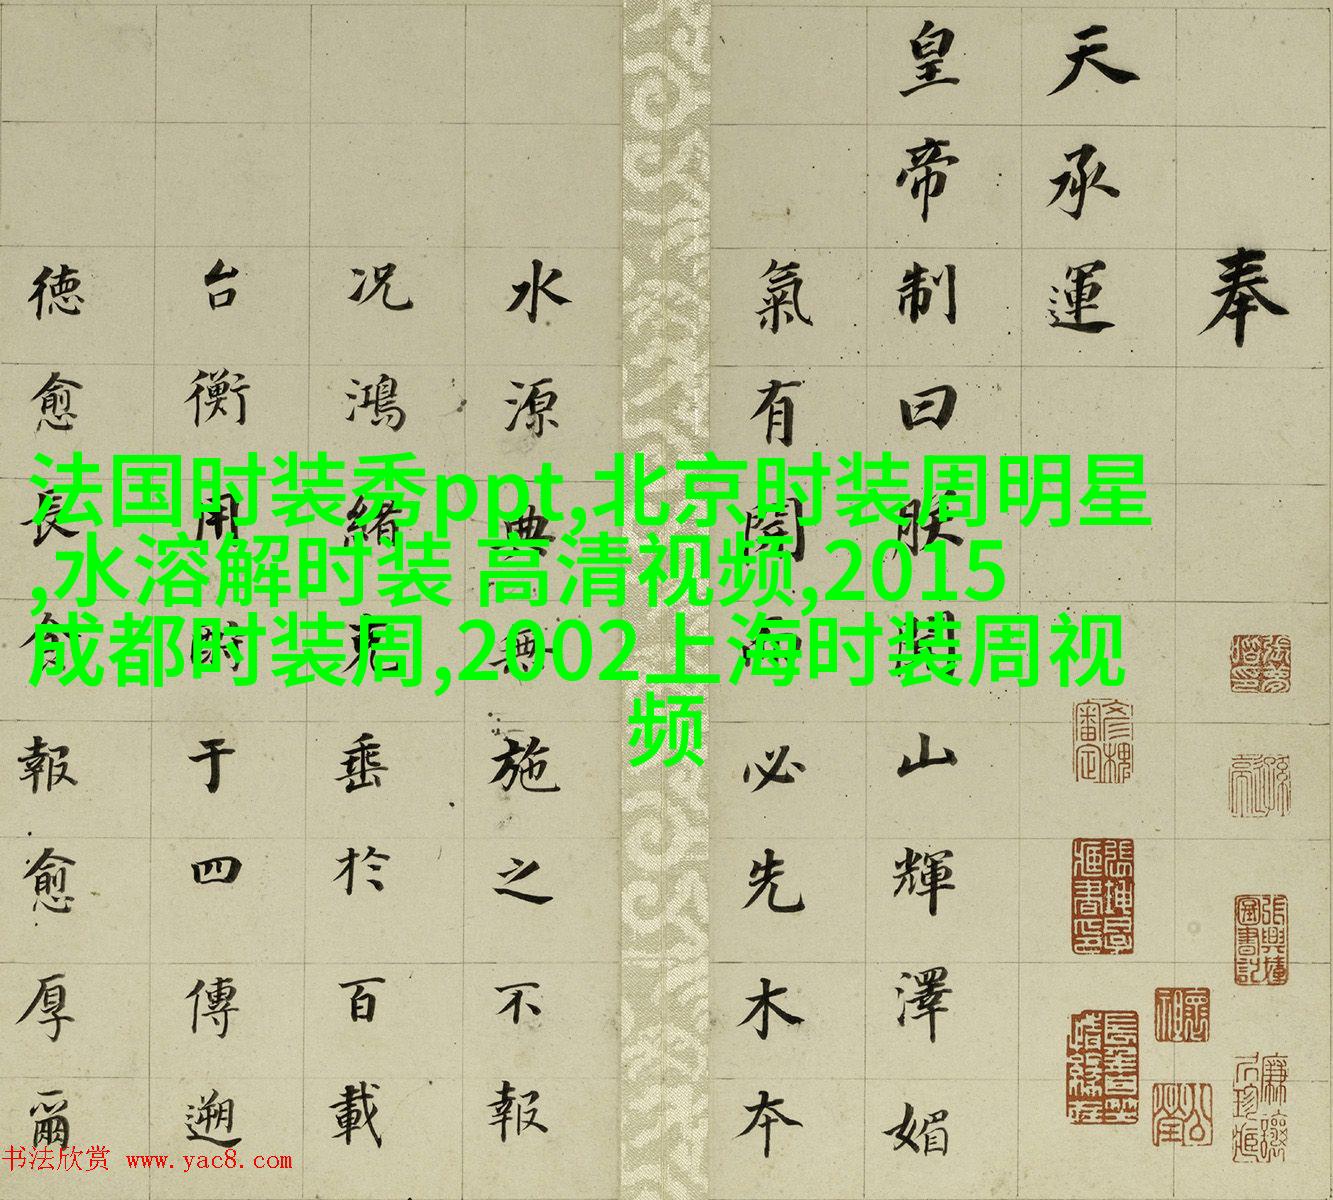 奉
天承運
皇帝制曰朕聞山輝澤媚
氣有而必先木本
水源典無施之不報
况鴻緒克垂於百載
台衡用于四傳遡
德愈長報愈厚爾
法国时装秀ppt,北京时装周明星
,水溶解时装 高清视频,2015
成都时装周,2002上海时装周视
频
书法欣赏 www.yac8.com